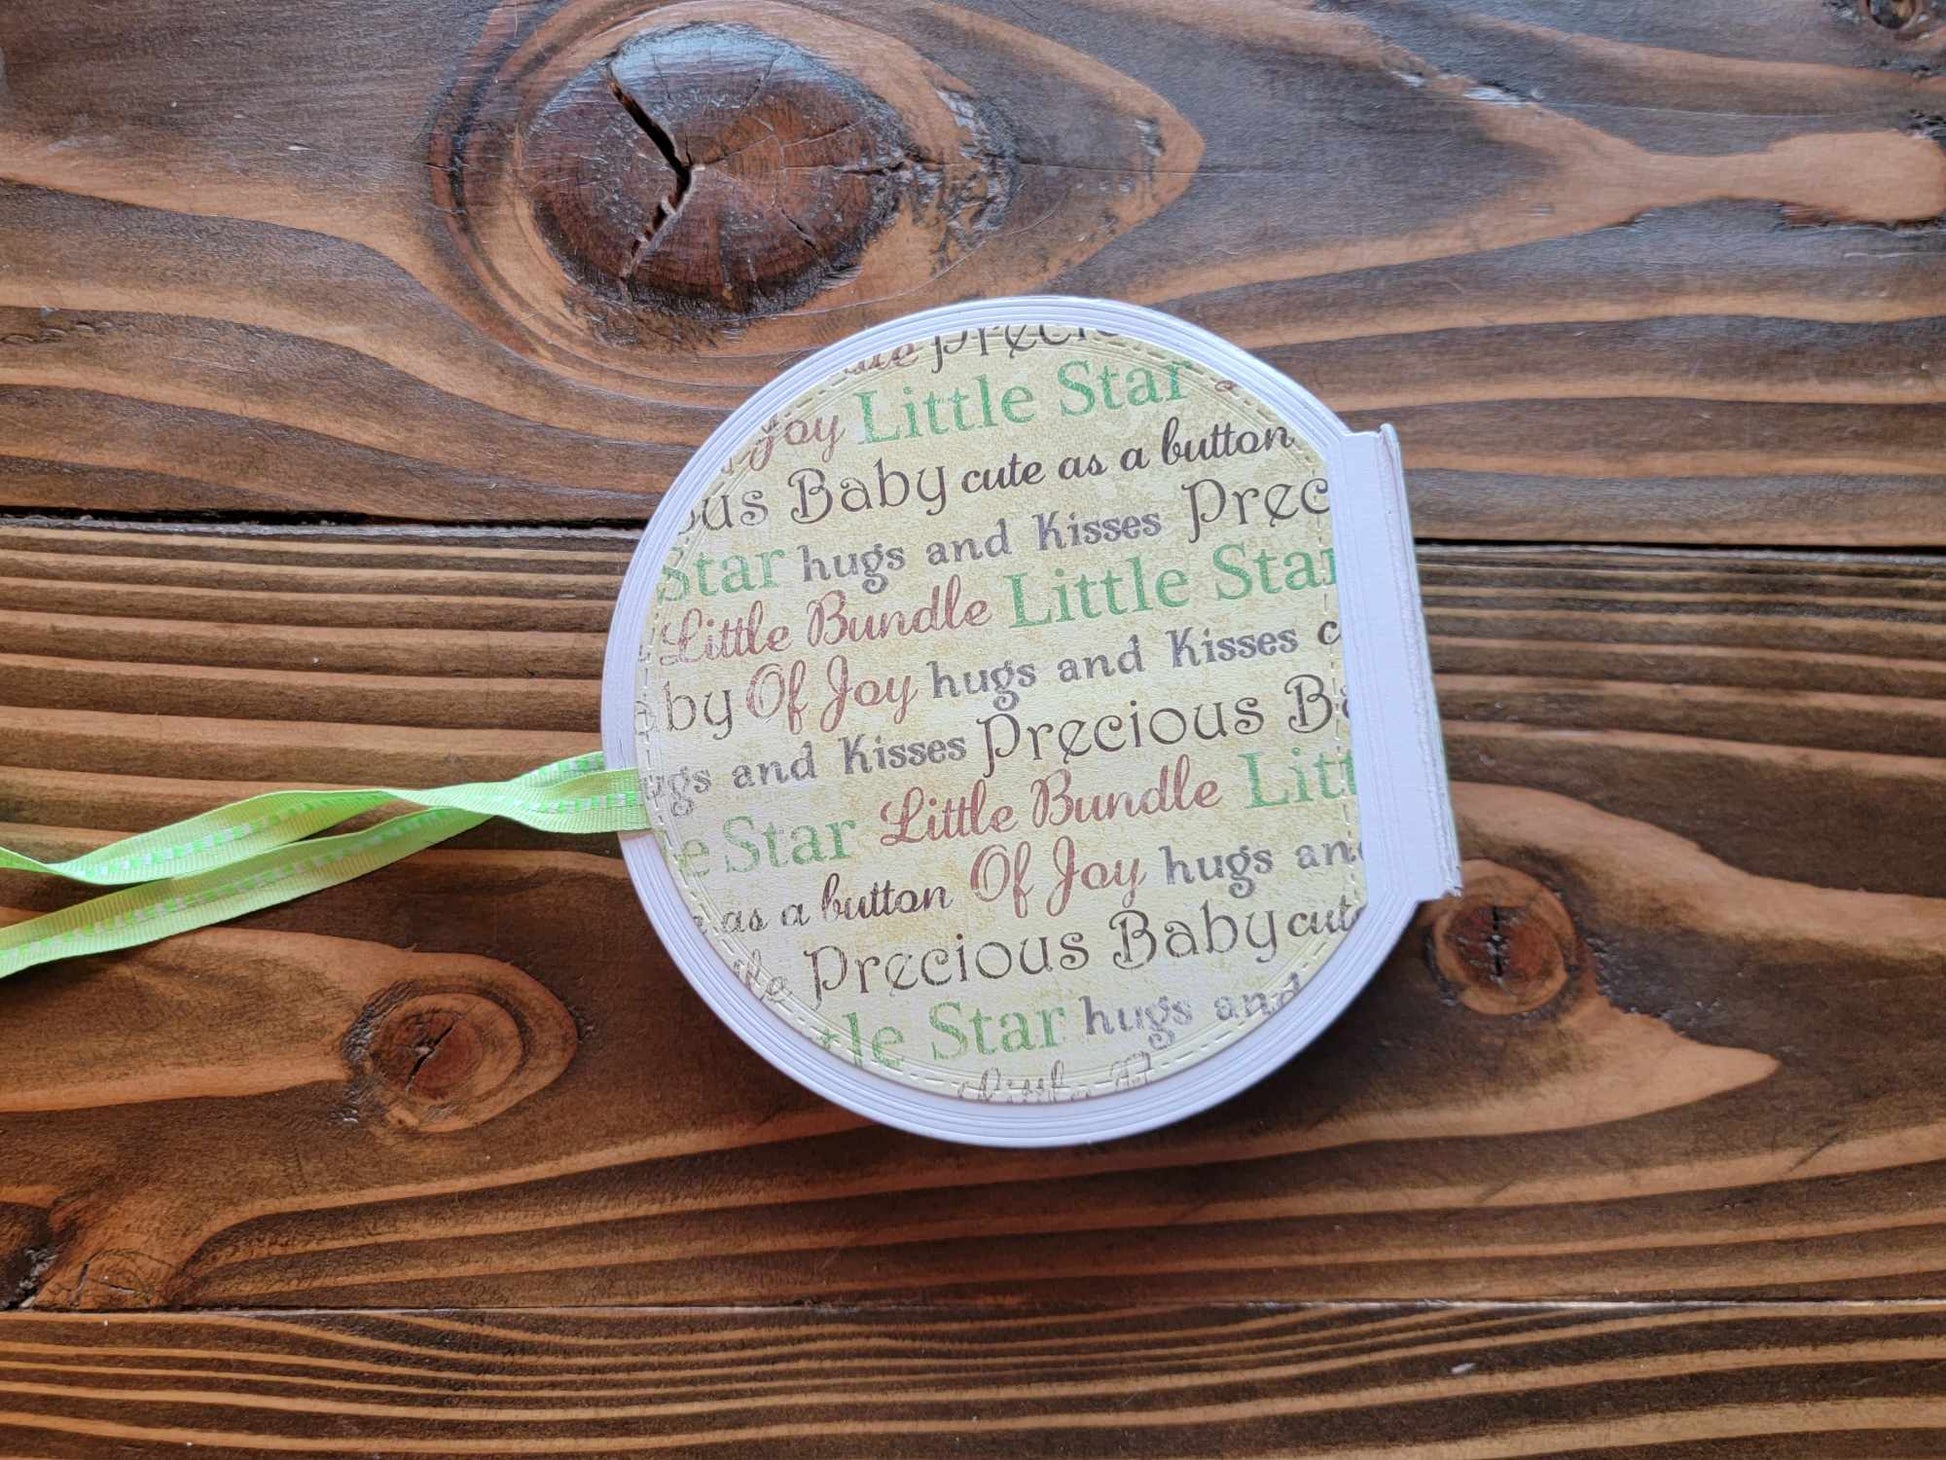 Joy Little Star
Baby cute as a button
Star hugs and Kisses Prec
Little Bundle Little Star
by Of Joy hugs and Kisses c
ugs and Kisses Precious Ba
e Star Little Bundle Litt
as a button Of Joy hugs and
Precious Baby cute
tle Star hugs and